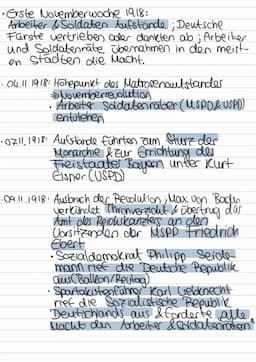 • Erste Novemberwoche 1918:
Arbeiter & Soldaten Aufstände; Deutsche
Fürste vertrieben oder dankten ab; Arbeiter
und Soldatenräte übernahmen in den meist-
en Städten die Macht.
• 04.11.1918: Höhepunkt des Matrosenaufstandes
→ Novemberrevolution
• Arbeiter Soldatenräte (MSPD & USPD)
entstehen
• 07.11.1918: Aufstände führten zum Sturz der
Monarchie & zur Errichtung des
Freistaates Bayern unter Kurt
Eisner (USPD)
• 09.11.1918: Ausbruch der Revolution; Max von Baden
verkündet Thronverzicht & übertrug das
Amt des Reichskanzlers an den
Vorsitzenden der MSPD Friedrich
Ebert
• Sozialdemokrat Philipp Scheide-
mann rief die Deutsche Republik
aus (Balkon/Reichstag)
• Spartakistenführer Karl Liebknecht
rief die Sozialistische Republik
Deutschlands aus & forderte „alle
Macht den Arbeiter & Soldatenräten"